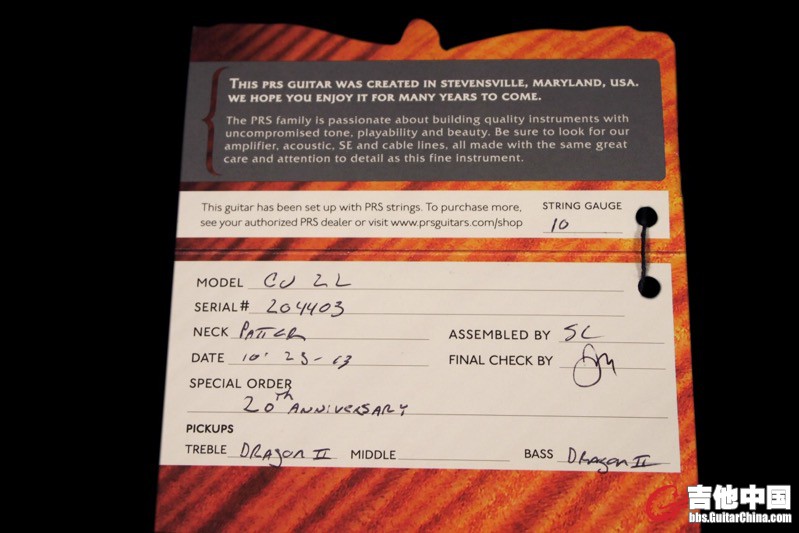 THIS PRS GUITAR WAS CREATED IN STEVENSVILLE, MARYLAND, USA.
WE HOPE YOU ENJOY IT FOR MANY YEARS TO COME.
The PRS family is passionate about building quality instruments with
uncompromised tone, playability and beauty. Be sure to look for our
amplifier, acoustic, SE and cable lines, all made with the same great
care and attention to detail as this fine instrument.
This guitar has been set up with PRS strings. To purchase more,
see your authorized PRS dealer or visit www.prsguitars.com/shop
STRING GAUGE
10
MODEL CU 22
SERIAL# 204403
NECK PATTERN
ASSEMBLED BY SC
DATE 10-23-13
FINAL CHECK BY
SPECIAL ORDER
20th ANNIVERSARY
PICKUPS
TREBLE DRAGON II MIDDLE BASS DRAGON II
吉他中国
bbs.GuitarChina.com